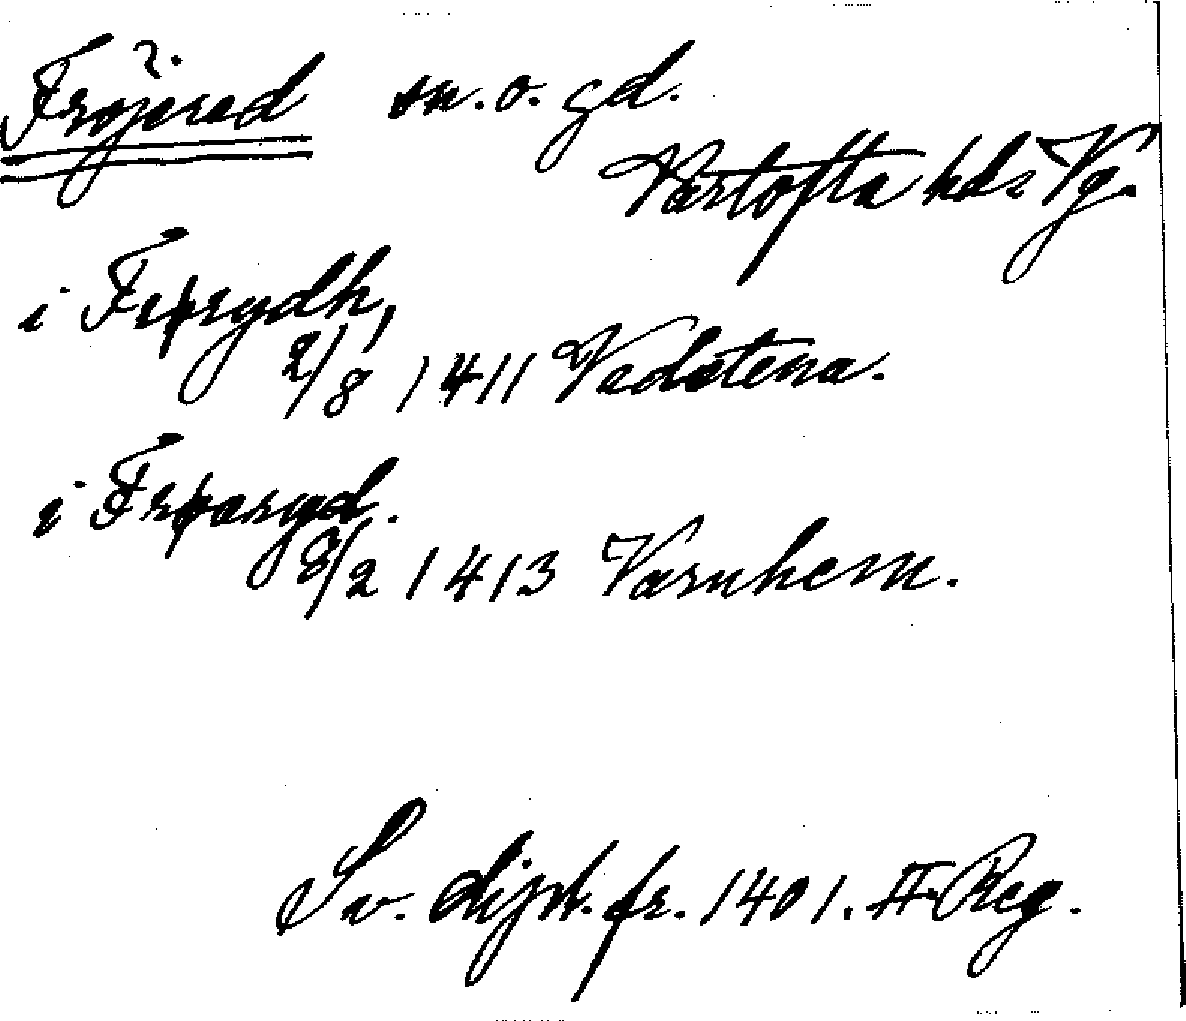 Fröjered sn. o. gd.
Vartofta hds Vg.
i Frørydh,
2/8 1411 Vadstena.
i Frøaryd.
8/2 1413 Varnhem.
Sv. dipl. fr. 1401. II. Reg.